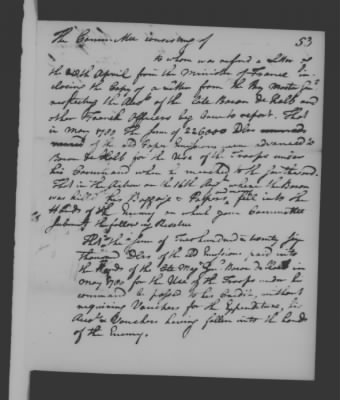 53
The Committee consisting of
to whom was referred a letter of
the 28th April from the Minister of France in-
closing the Copy of a letter from the Muster Genl
respecting the Accts of the late Baron de Kalb and
other French Officers beg leave to report. That
in May 1780 the sum of 226000 Dlrs
of the old Paper Emissions were advanced to
Baron de Kalb for the Use of the Troops under
his Command when he marched to the Southward.
That in the Action on the 16th Augt where the Baron
was kill'd his Baggage and Papers fell into the
Hands of the Enemy on which your Committee
submit the following Resolve
That the sum of Two hundred & twenty six
thousand Dlrs of the old Emissions, paid into
the Hands of the late Majr Genl Baron de Kalb in
May 1780 for the Use of the Troops under his
command be passed to his Credit, without
requiring Vouchers for the Expenditure, his
Accts & Vouchers having fallen into the hands
of the Enemy.